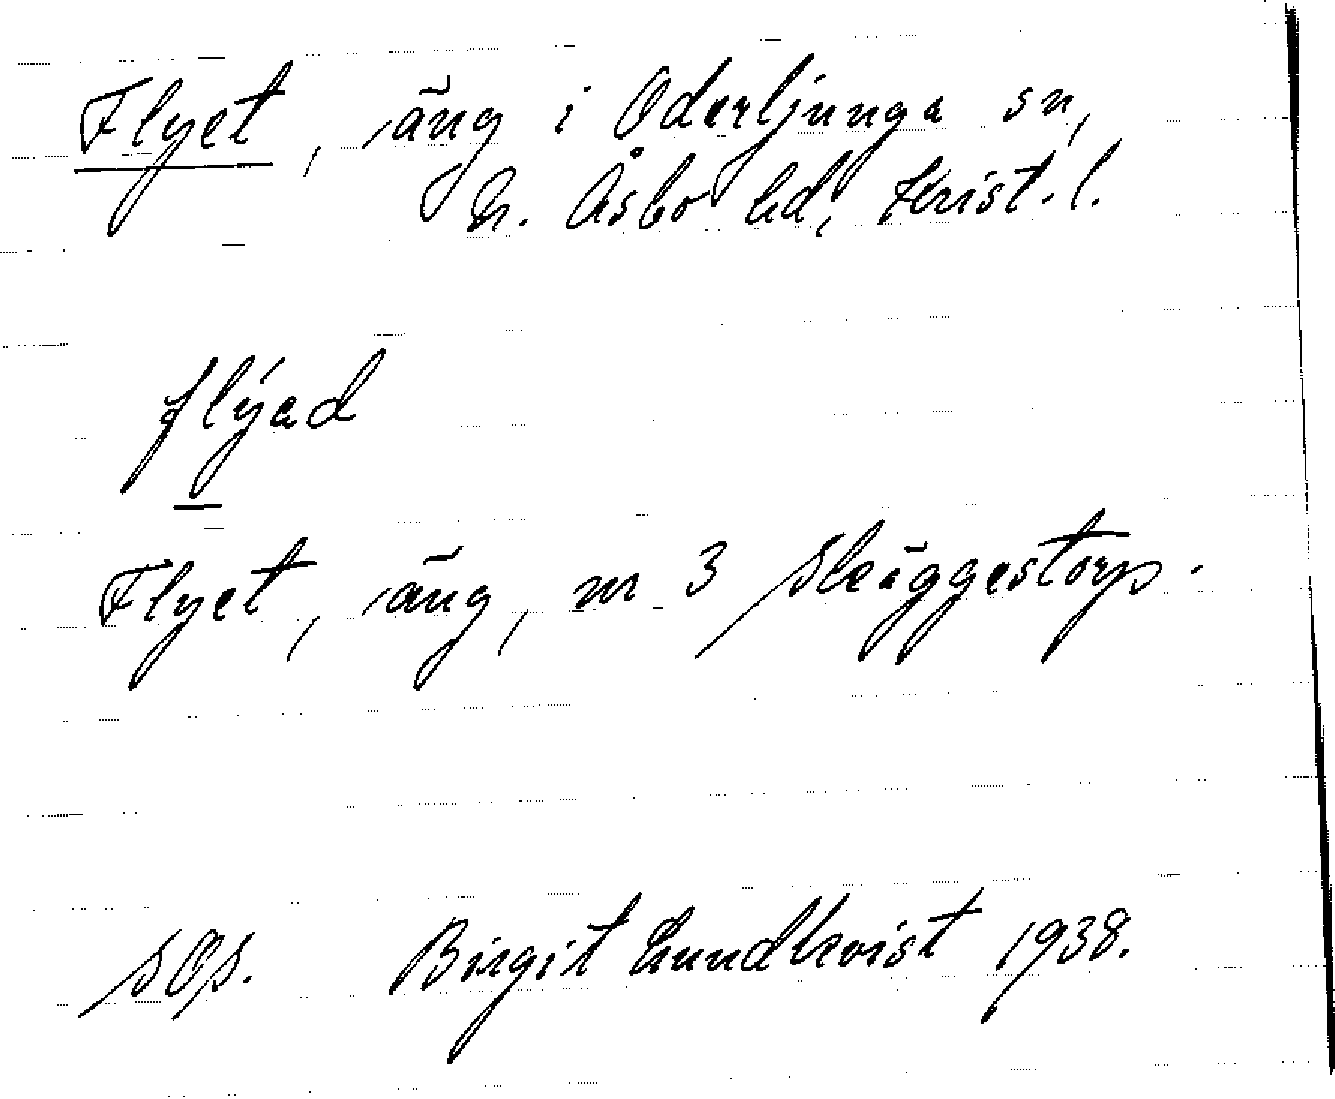 Flyet, äng i Oderljunga sn,
N. Åsbo hd, Krist. l.
flýəd
Flyet, äng, nr 3 Skäggestorp.
Birgit Lundkvist 1938.